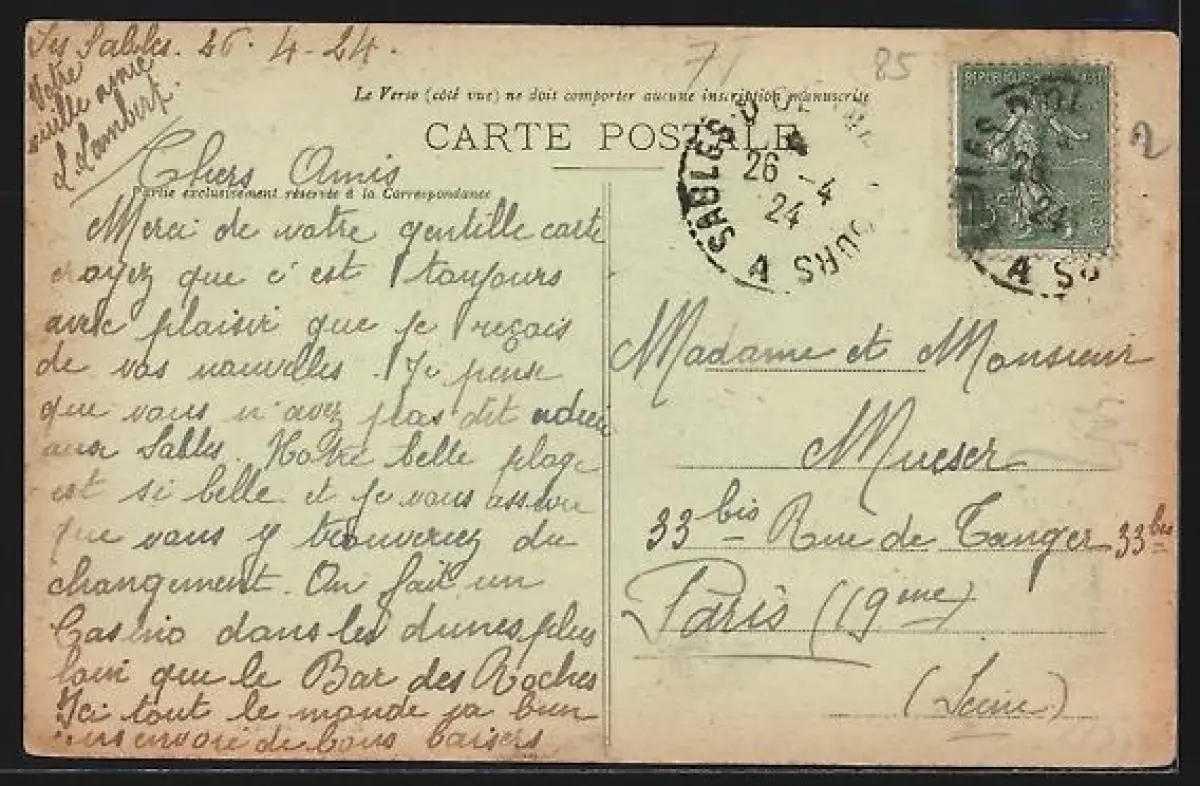 Les Sables. 26-4-24.
Votre
vieille amie
L. Lambert.
71
85
2
Le Verso (côté vue) ne doit comporter aucune inscription manuscrite
CARTE POSTALE
Partie exclusivement réservée à la Correspondance
Chers Amis
Merci de votre gentille carte
croyez que c'est toujours
avec plaisir que je reçois
de vos nouvelles. Je pense
que vous n'avez pas dit adieu
aux Sables. Notre belle plage
est si belle et je vous assure
que vous y trouveriez du
changement. On fait un
Casino dans les dunes plus
loin que le Bar des Roches
Ici tout le monde va bien
vous envoie de bons baisers
SABLES D'OL
26-4
24
A
OURS
26
24
A SO
Madame et Monsieur
Mueser
33 bis Rue de Tanger 33 bis
Paris (19ème)
(Seine)